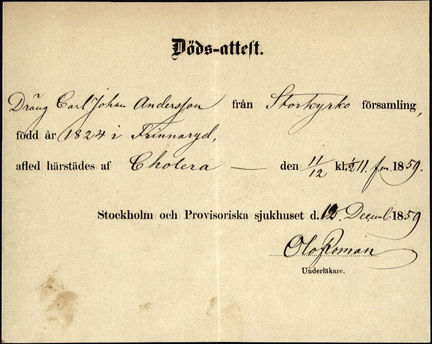 Döds-attest.
Dräng Carl Johan Andersson från Storkyrko församling,
född år 1824 i Frinnaryd,
afled härstädes af Cholera — den 11/12 kl. ½11. fm. 1859.
Stockholm och Provisoriska sjukhuset d. 12. Decemb. 1859
Olof Roman
Underläkare.